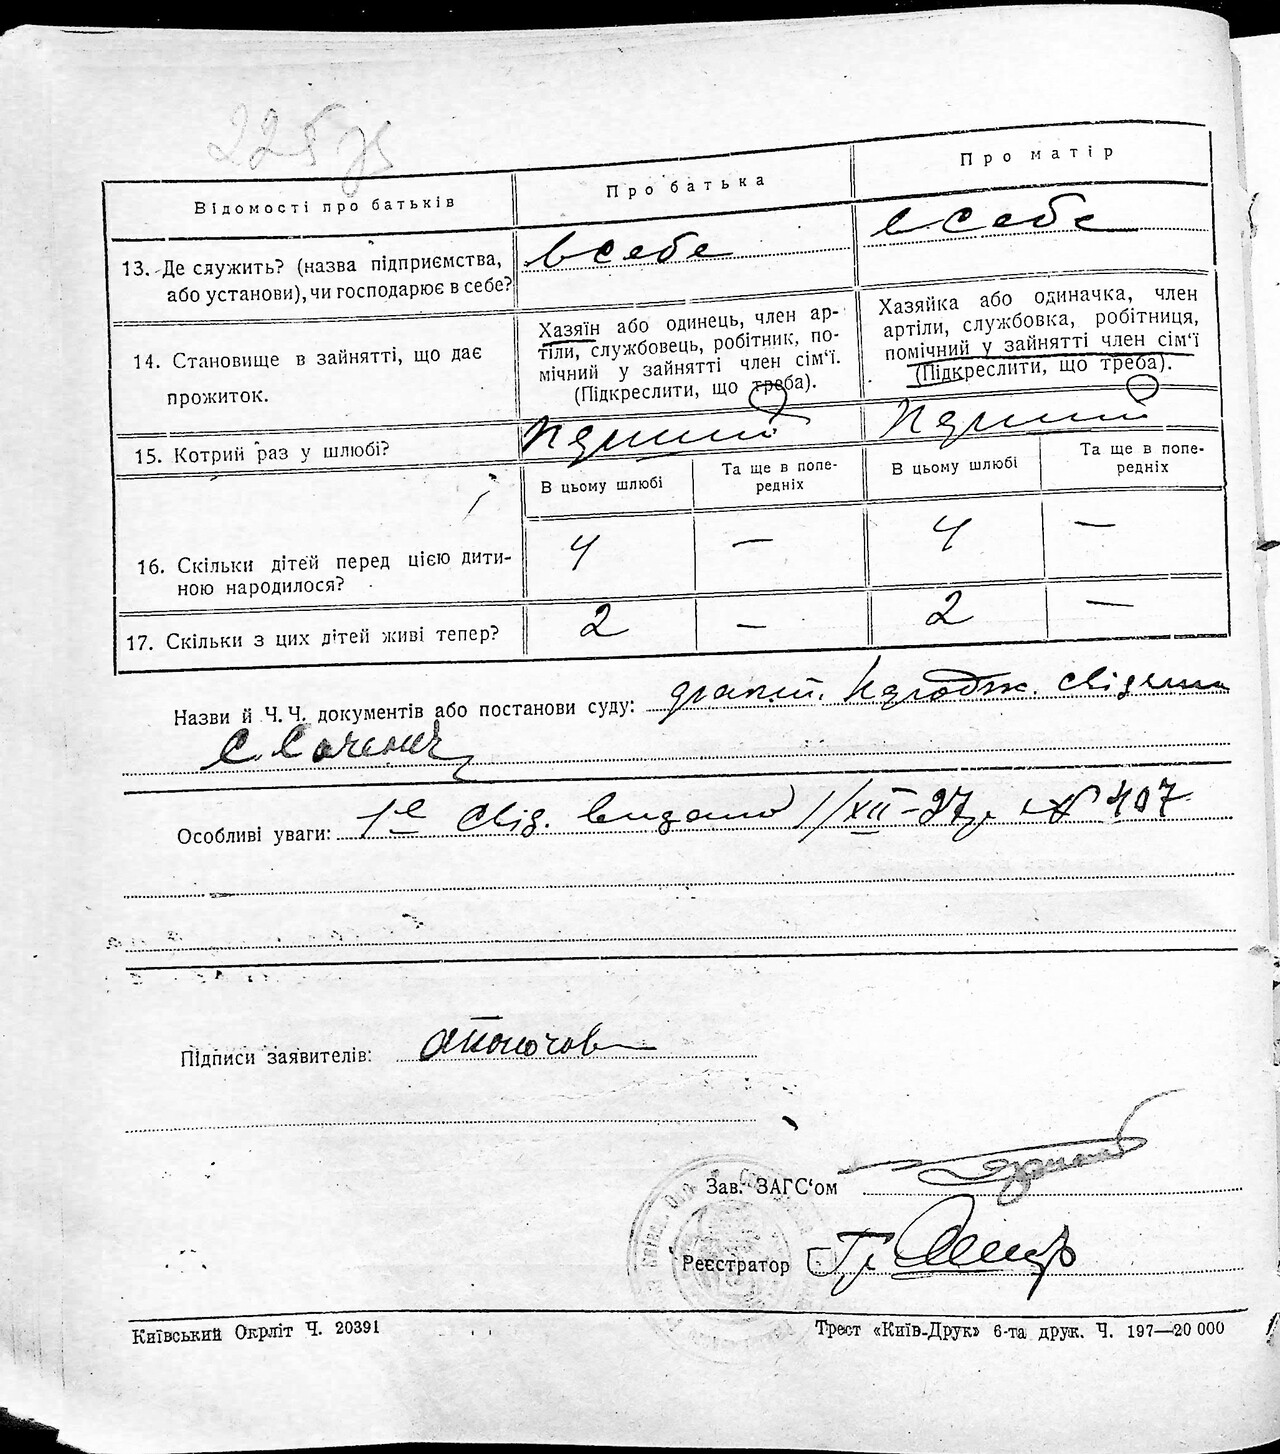 Відомості про батьків
Про батька
Про матір
13. Де служить? (назва підприємства,
або установи), чи господарює в себе?
в себе
в себе
14. Становище в зайнятті, що дає
прожиток.
Хазяїн або одинець, член ар-
тіли, службовець, робітник, по-
мічний у зайнятті член сім'ї.
(Підкреслити, що треба).
Хазяйка або одиначка, член
артіли, службовка, робітниця,
помічний у зайнятті член сім'ї
(Підкреслити, що треба).
15. Котрий раз у шлюбі?
Перший
Перший
В цьому шлюбі
Та ще в попе-
редніх
В цьому шлюбі
Та ще в попе-
редніх
16. Скільки дітей перед цією дити-
ною народилося?
4
—
4
—
17. Скільки з цих дітей живі тепер?
2
—
2
—
Назви й Ч.Ч. документів або постанови суду:
Особливі уваги: 1е свід. видано 1/XII-27р. № 407
Підписи заявителів:
Зав. ЗАГС'ом
Реєстратор
Київський Окрліт Ч. 20391
Трест «Київ-Друк» 6-та друк. Ч. 197—20 000